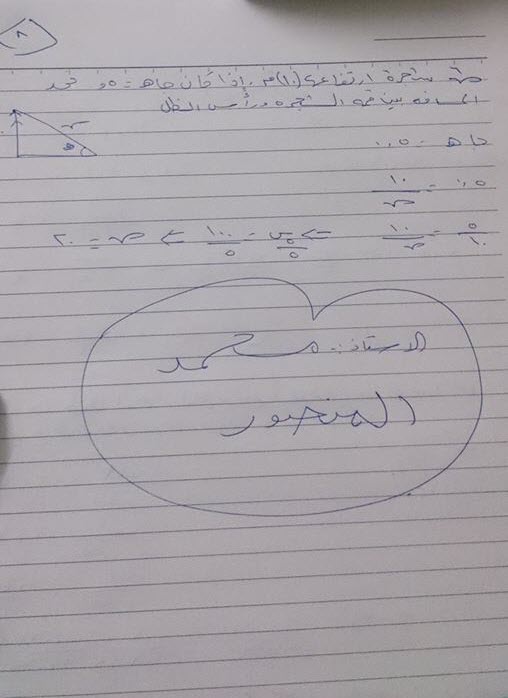 ٨
شجرة ارتفاعها (١٠)م . إذا كان جاهـ = ٥و. فجد
المسافه بين قمة الشجره ورأس الظل
جاهـ = ٥و.
٥و. = ١٠/س
٥/١٠ = ١٠/س <= ٥س/٥ = ١٠٠/٥ <= س = ٢٠
الاستاذ :- محمد
المنصور